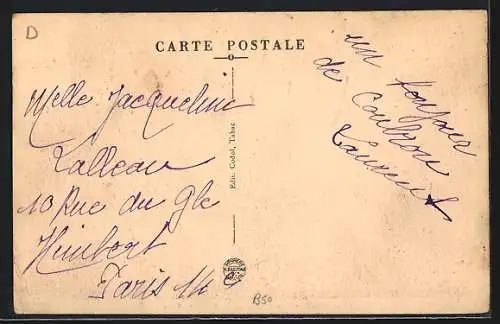 D
CARTE POSTALE
un bonjour
de Coubron
Laurent
Melle Jacqueline
Lalleau
10 Rue du Gle
Humbert
Paris 14e
Edit. Codol, Tabac
B50